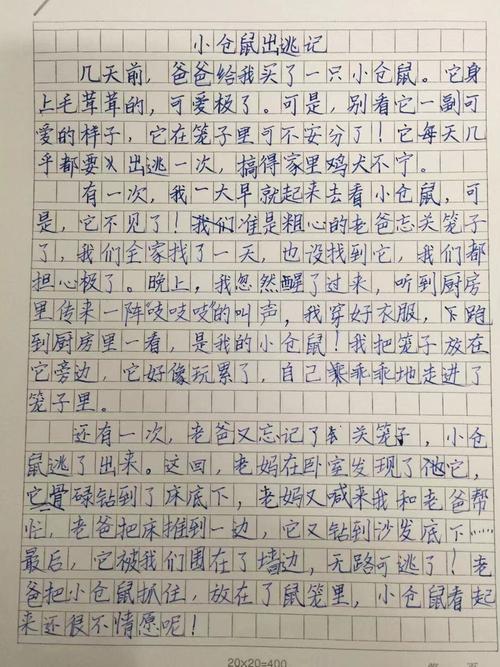 小仓鼠出逃记
几天前，爸爸给我买了一只小仓鼠。它身
上毛茸茸的，可爱极了。可是，别看它一副可
爱的样子，它在笼子里可不安分了！它每天几
乎都要出逃一次，搞得家里鸡犬不宁。
有一次，我一大早就起来去看小仓鼠，可
是，它不见了！我们准是粗心的老爸忘关笼子
了，我们全家找了一天，也没找到它，我们都
担心极了。晚上，我忽然醒了过来，听到厨房
里传来一阵“吱吱吱”的叫声，我穿好衣服，下跑
到厨房里一看，是我的小仓鼠！我把笼子放在
它旁边，它好像玩累了，自己乖乖地走进了
笼子里。
还有一次，老爸又忘记了关笼子，小仓
鼠逃了出来。这回，老妈在卧室发现了它，
它骨碌钻到了床底下，老妈又喊来我和老爸帮
忙，老爸把床推到一边，它又钻到沙发底下……
最后，它被我们围在了墙边，无路可逃了！老
爸把小仓鼠抓住，放在了鼠笼里，小仓鼠看起
来还很不情愿呢！
20×20=400